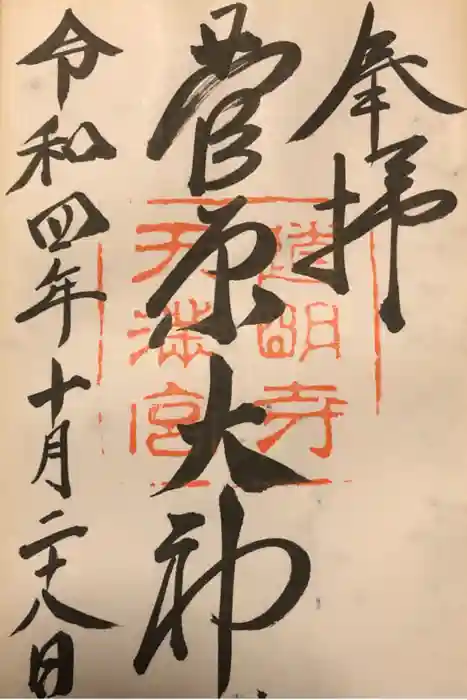 奉拝
道明寺
天満宮
菅原大神
令和四年十月二十八日